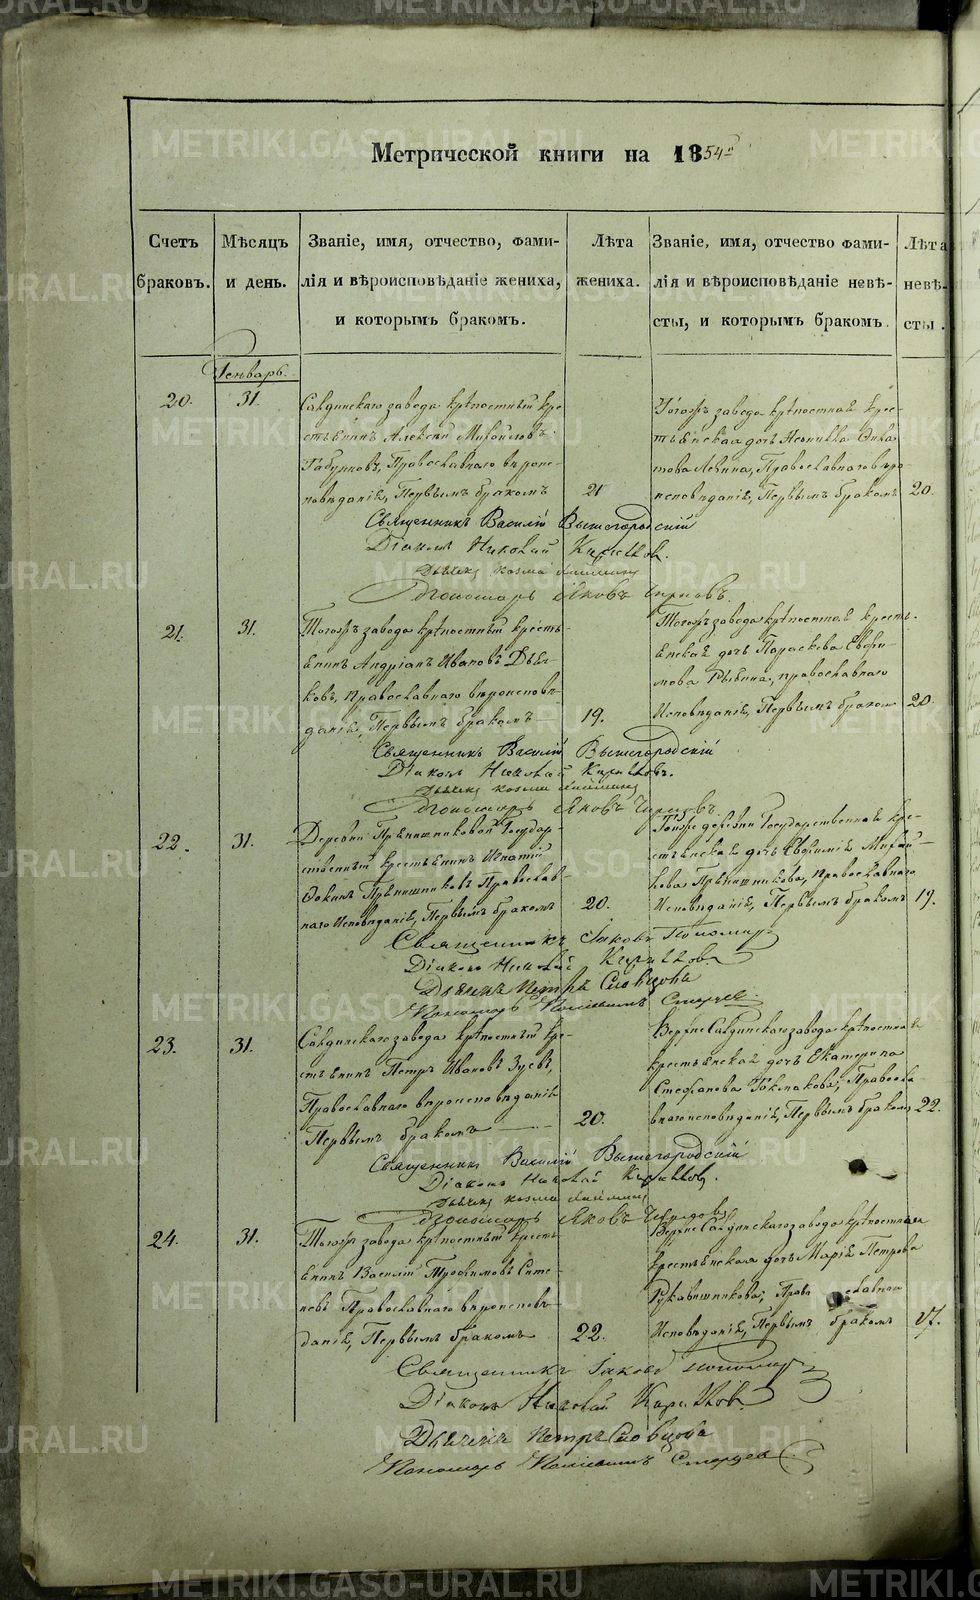 Метрической книги на 1854й
Счетъ браковъ.
Мѣсяцъ и день.
Званіе, имя, отчество, фами-
лія и вѣроисповѣданіе жениха,
и которымъ бракомъ.
Лѣта жениха.
Званіе, имя, отчество фами-
лія и вѣроисповѣданіе невѣ-
сты, и которымъ бракомъ.
Лѣта невѣ-
сты.
Генварь.
20.
31.
Салдинскаго завода крѣпостный кре-
стьянинъ Алексѣй Михайловъ
Православнаго вѣроис-
повѣданія, Первымъ бракомъ
21
Тогожъ завода крѣпостная крес-
тьянская дочь
Православнаго вѣро-
исповѣданія, Первымъ бракомъ
20.
Священникъ Василій Вышегородскій
Діаконъ Николай
Дьячекъ Козма
Пономарь Яковъ
21.
31.
Тогожъ завода крѣпостный кресть-
янинъ Андріанъ Ивановъ Дья-
ковъ, православнаго вѣроисповѣ-
данія, Первымъ бракомъ
19.
Тогожъ завода крѣпостная кресть-
янская дочь Параскева Ефи-
мова Рыбина, православнаго
Исповѣданія, Первымъ браком
20.
Священникъ Василій Вышегородскій
Діаконъ Николай
Дьячекъ Козма
Пономарь Яковъ
22.
31.
Деревни Прянишниковой Государ-
ственный крестьянинъ Игнатій
Фокинъ Прянишниковъ Православ-
наго Исповѣданія, Первымъ бракомъ
20.
Тойже деревни Государственная кре-
стьянская дочь Евфимія Михай-
лова Прянишникова, православнаго
Исповѣданія, Первымъ бракомъ
19.
Священникъ Іаковъ
Діаконъ Николай
Дьячекъ Петръ Словцовъ
Пономарь Старцев
23.
31.
Салдинскаго завода крѣпостный кре-
стьянинъ Петръ Ивановъ Зуевъ,
Православнаго вѣроисповѣданія
Первымъ бракомъ
20.
Верхне Салдинскаго завода крѣпостная
крестьянская дочь Екатерина
Стефанова Токмакова, Правосла
внаго исповѣданія, Первымъ бракомъ
22.
Священникъ Василій Вышегородскій
Діаконъ Николай
Дьячекъ Козма
Пономарь Яковъ
24.
31.
Тогожъ завода крѣпостный кресть-
янинъ Василій Трофимовъ Сите-
невъ Православнаго вѣроисповѣ-
данія, Первымъ бракомъ
22.
Верхне Салдинскаго завода крѣпостная
крестьянская дочь Марія Петрова
Рукавишникова, Православнаго
Исповѣданія, Первымъ бракомъ
17.
Священникъ Іаковъ
Діаконъ Николай
Дьячекъ Петръ Словцовъ
Пономарь Старцев
METRIKI.GASO-URAL.RU